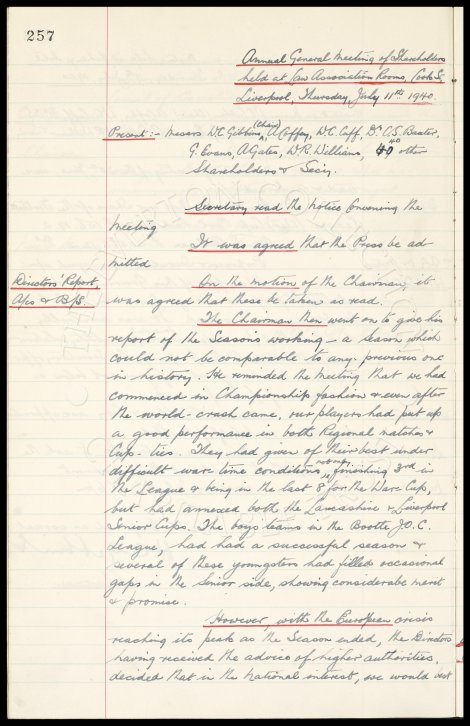 257
Annual General Meeting of Shareholders
held at Law Association Rooms, Cook St
Liverpool, Thursday, July 11th 1940.
Present:- Messrs W.C. Gibbins, (Chair) A. Coffey, W.C. Cuff, Dr C.S. Baxter,
G. Evans, A. Gates, W.R. Williams, 40 other
Shareholders & Secy.
Secretary read the notice convening the
meeting
It was agreed that the Press be ad
mitted
Directors' Report,
A/cs & B/S.
On the motion of the Chairman, it
was agreed that these be taken as read.
The Chairman then went on to give his
report of the Seasons working - a season which
could not be comparable to any previous one
in history. He reminded the meeting that we had
commenced in Championship fashion & even after
the world-crash came, our players had put up
a good performance in both Regional matches &
Cup-ties. They had given of their best under
difficult war time conditions, finishing 3rd in
the League & being in the last 8 for the War Cup,
but had annexed both the Lancashire & Liverpool
Senior Cups. The boys teams in the Bootle J.O.C.
League, had had a successful season &
several of these youngsters had filled occasional
gaps in the Senior side, showing considerable merit
& promise.
However, with the European crisis
reaching its peak as the Season ended, the Directors
having received the advice of higher authorities,
decided that in the national interest, we would